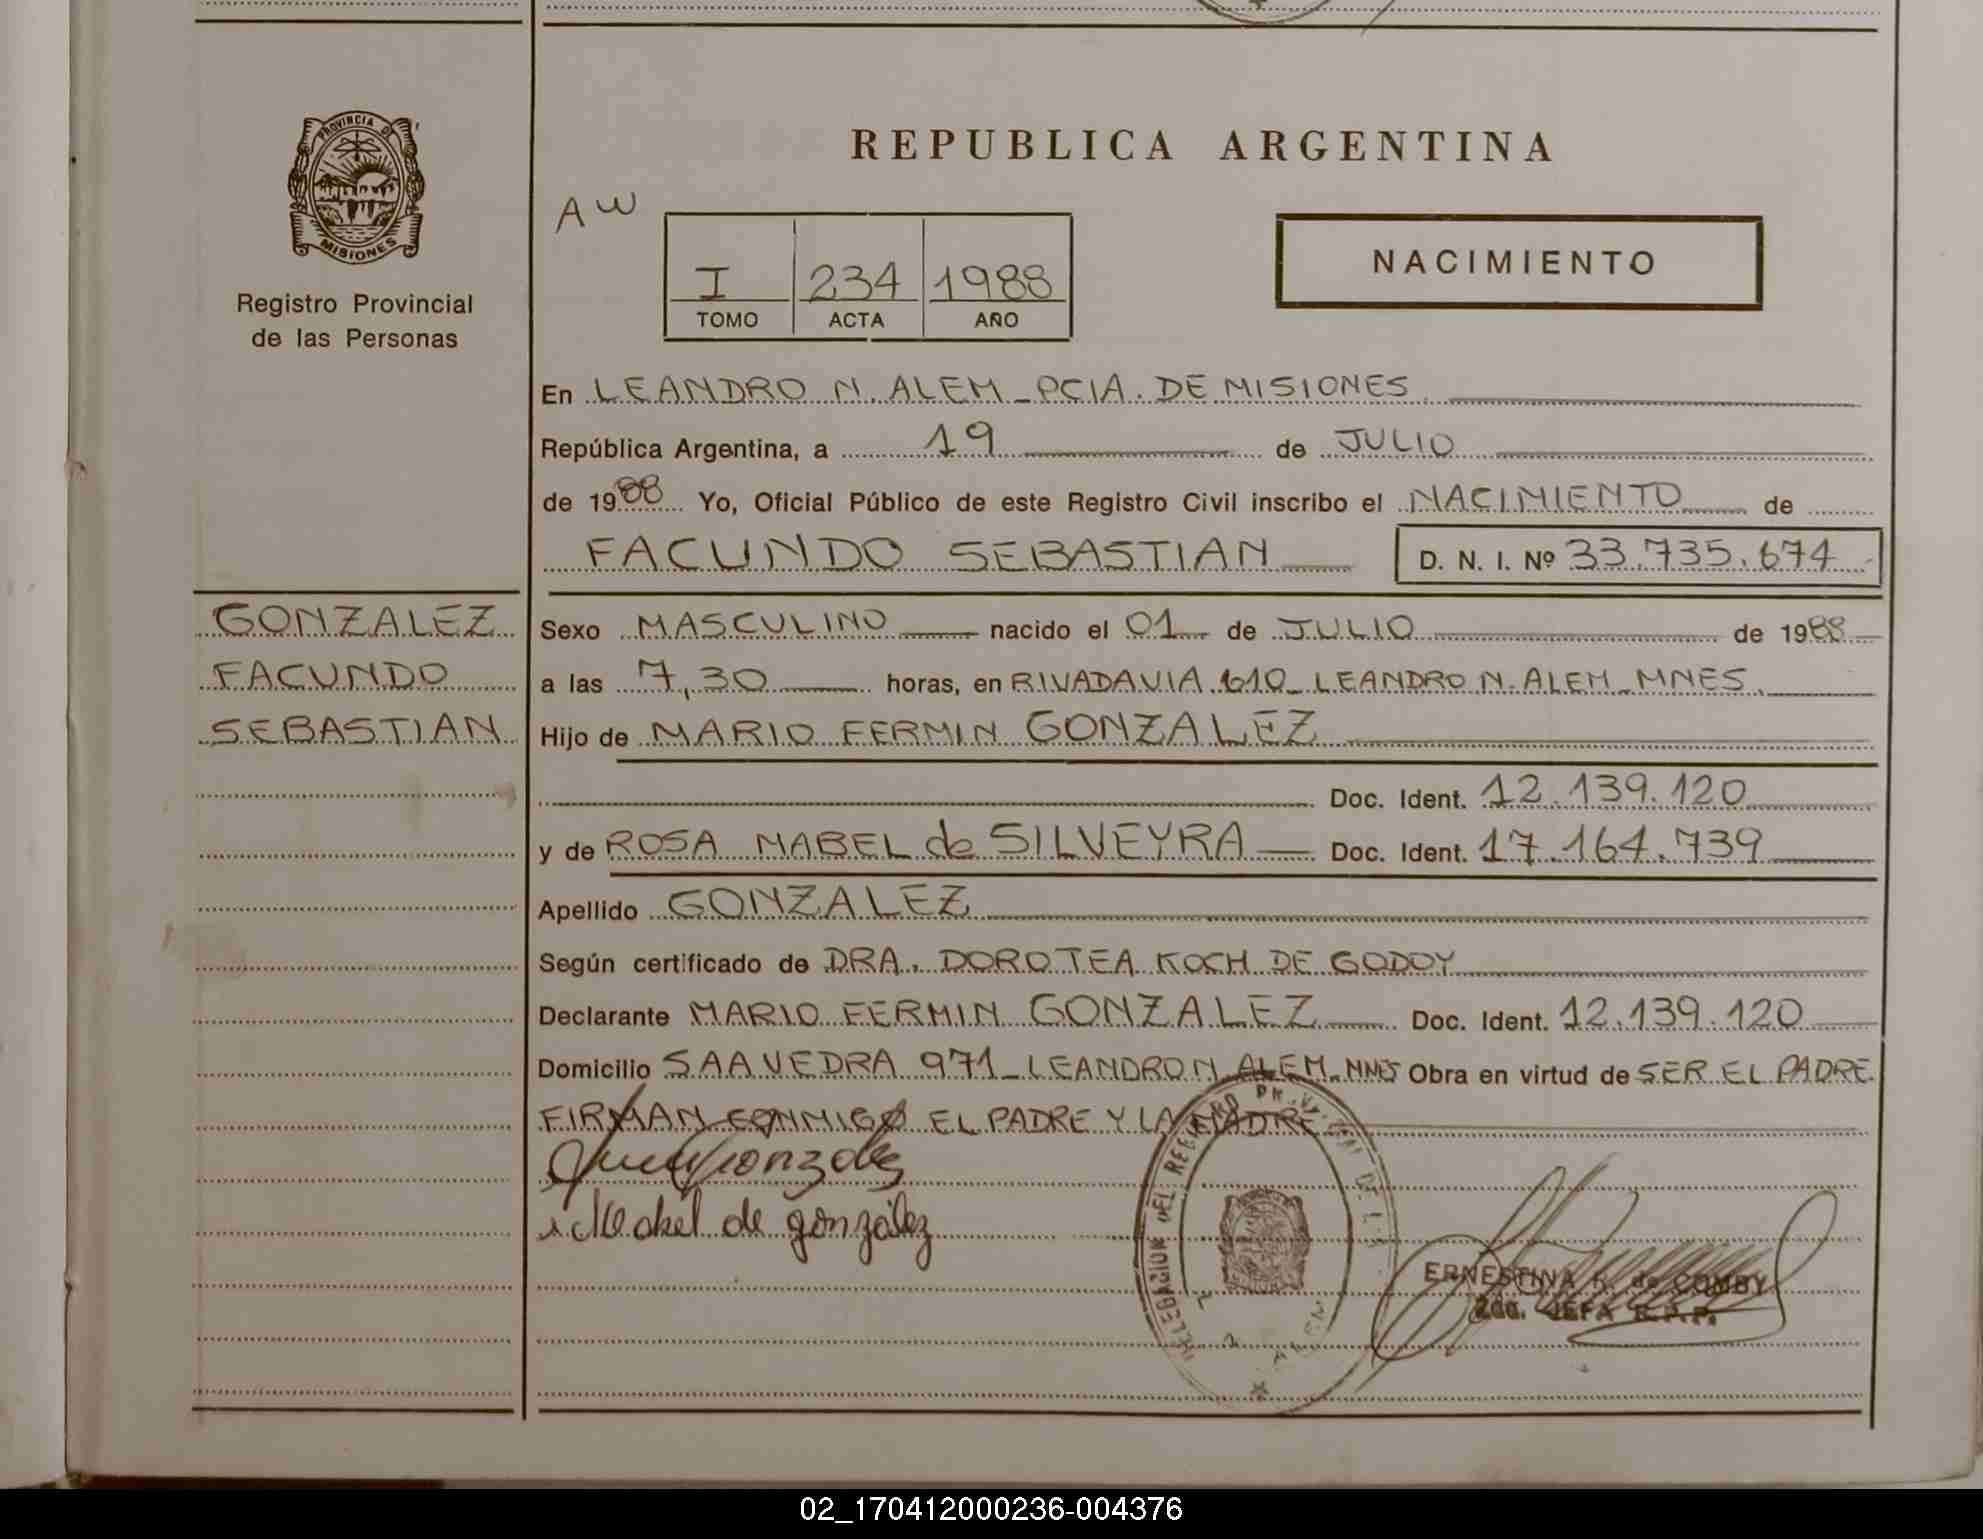 PROVINCIA DE
MISIONES
Registro Provincial
de las Personas
REPUBLICA ARGENTINA
AW
I 234 1988
TOMO ACTA AÑO
NACIMIENTO
En LEANDRO N. ALEM - PCIA. DE MISIONES
República Argentina, a 19 de JULIO
de 1988 Yo, Oficial Público de este Registro Civil inscribo el NACIMIENTO de
FACUNDO SEBASTIAN D. N. I. Nº 33.735.674
GONZALEZ
FACUNDO
SEBASTIAN
Sexo MASCULINO nacido el 01 de JULIO de 1988
a las 7,30 horas, en RIVADAVIA 610 - LEANDRO N. ALEM - MNES.
Hijo de MARIO FERMIN GONZALEZ
Doc. Ident. 12.139.120
y de ROSA MABEL de SILVEYRA Doc. Ident. 17.164.739
Apellido GONZALEZ
Según certificado de DRA. DOROTEA KOCH DE GODOY
Declarante MARIO FERMIN GONZALEZ Doc. Ident. 12.139.120
Domicilio SAAVEDRA 971 - LEANDRO N. ALEM - MNES Obra en virtud de SER EL PADRE.
FIRMAN CONMIGO EL PADRE Y LA MADRE
Gonzalez
Mabel de gonzález
DELEGACION DEL REGISTRO PROVINCIAL DE LA
ERNESTINA K. de COMBY
2da. JEFA R.P.P.
02_170412000236-004376